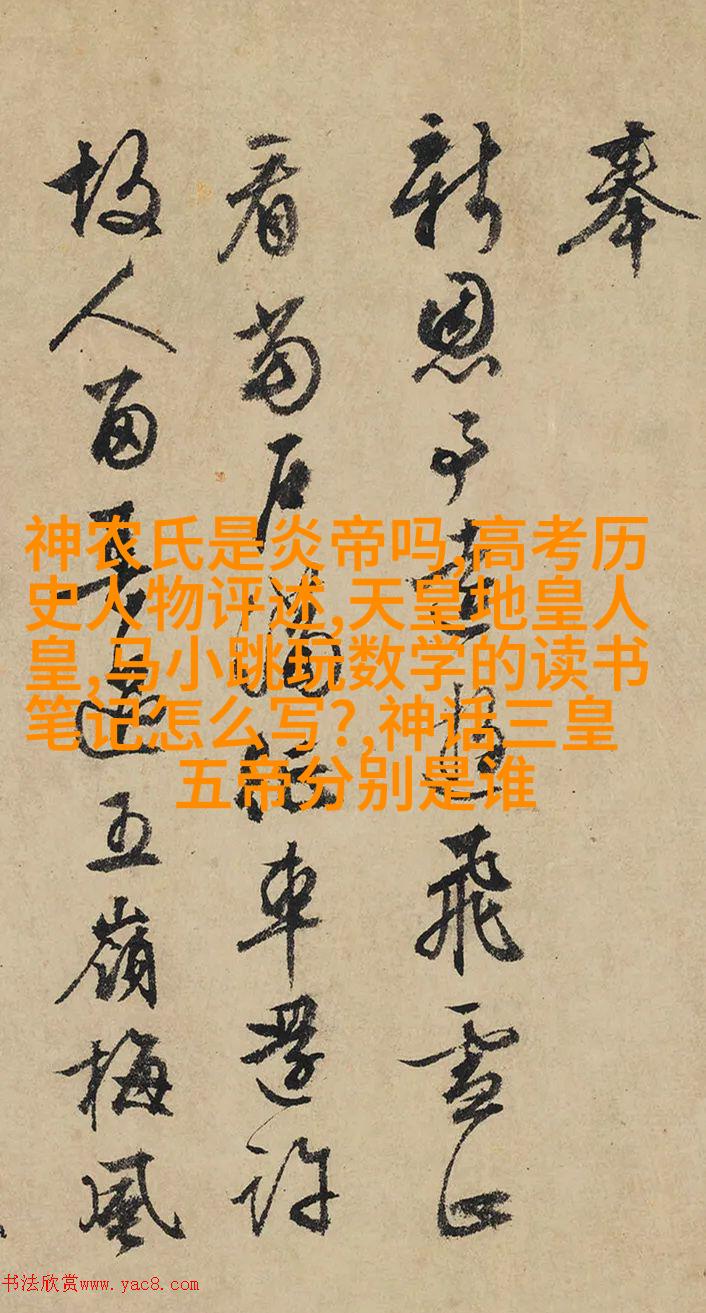 奉
新恩予飛雪
看車還許
故人留五嶺梅風
神农氏是炎帝吗,高考历
史人物评述,天皇地皇人
皇,马小跳玩数学的读书
笔记怎么写?,神话三皇
五帝分别是谁
书法欣赏www.yac8.com